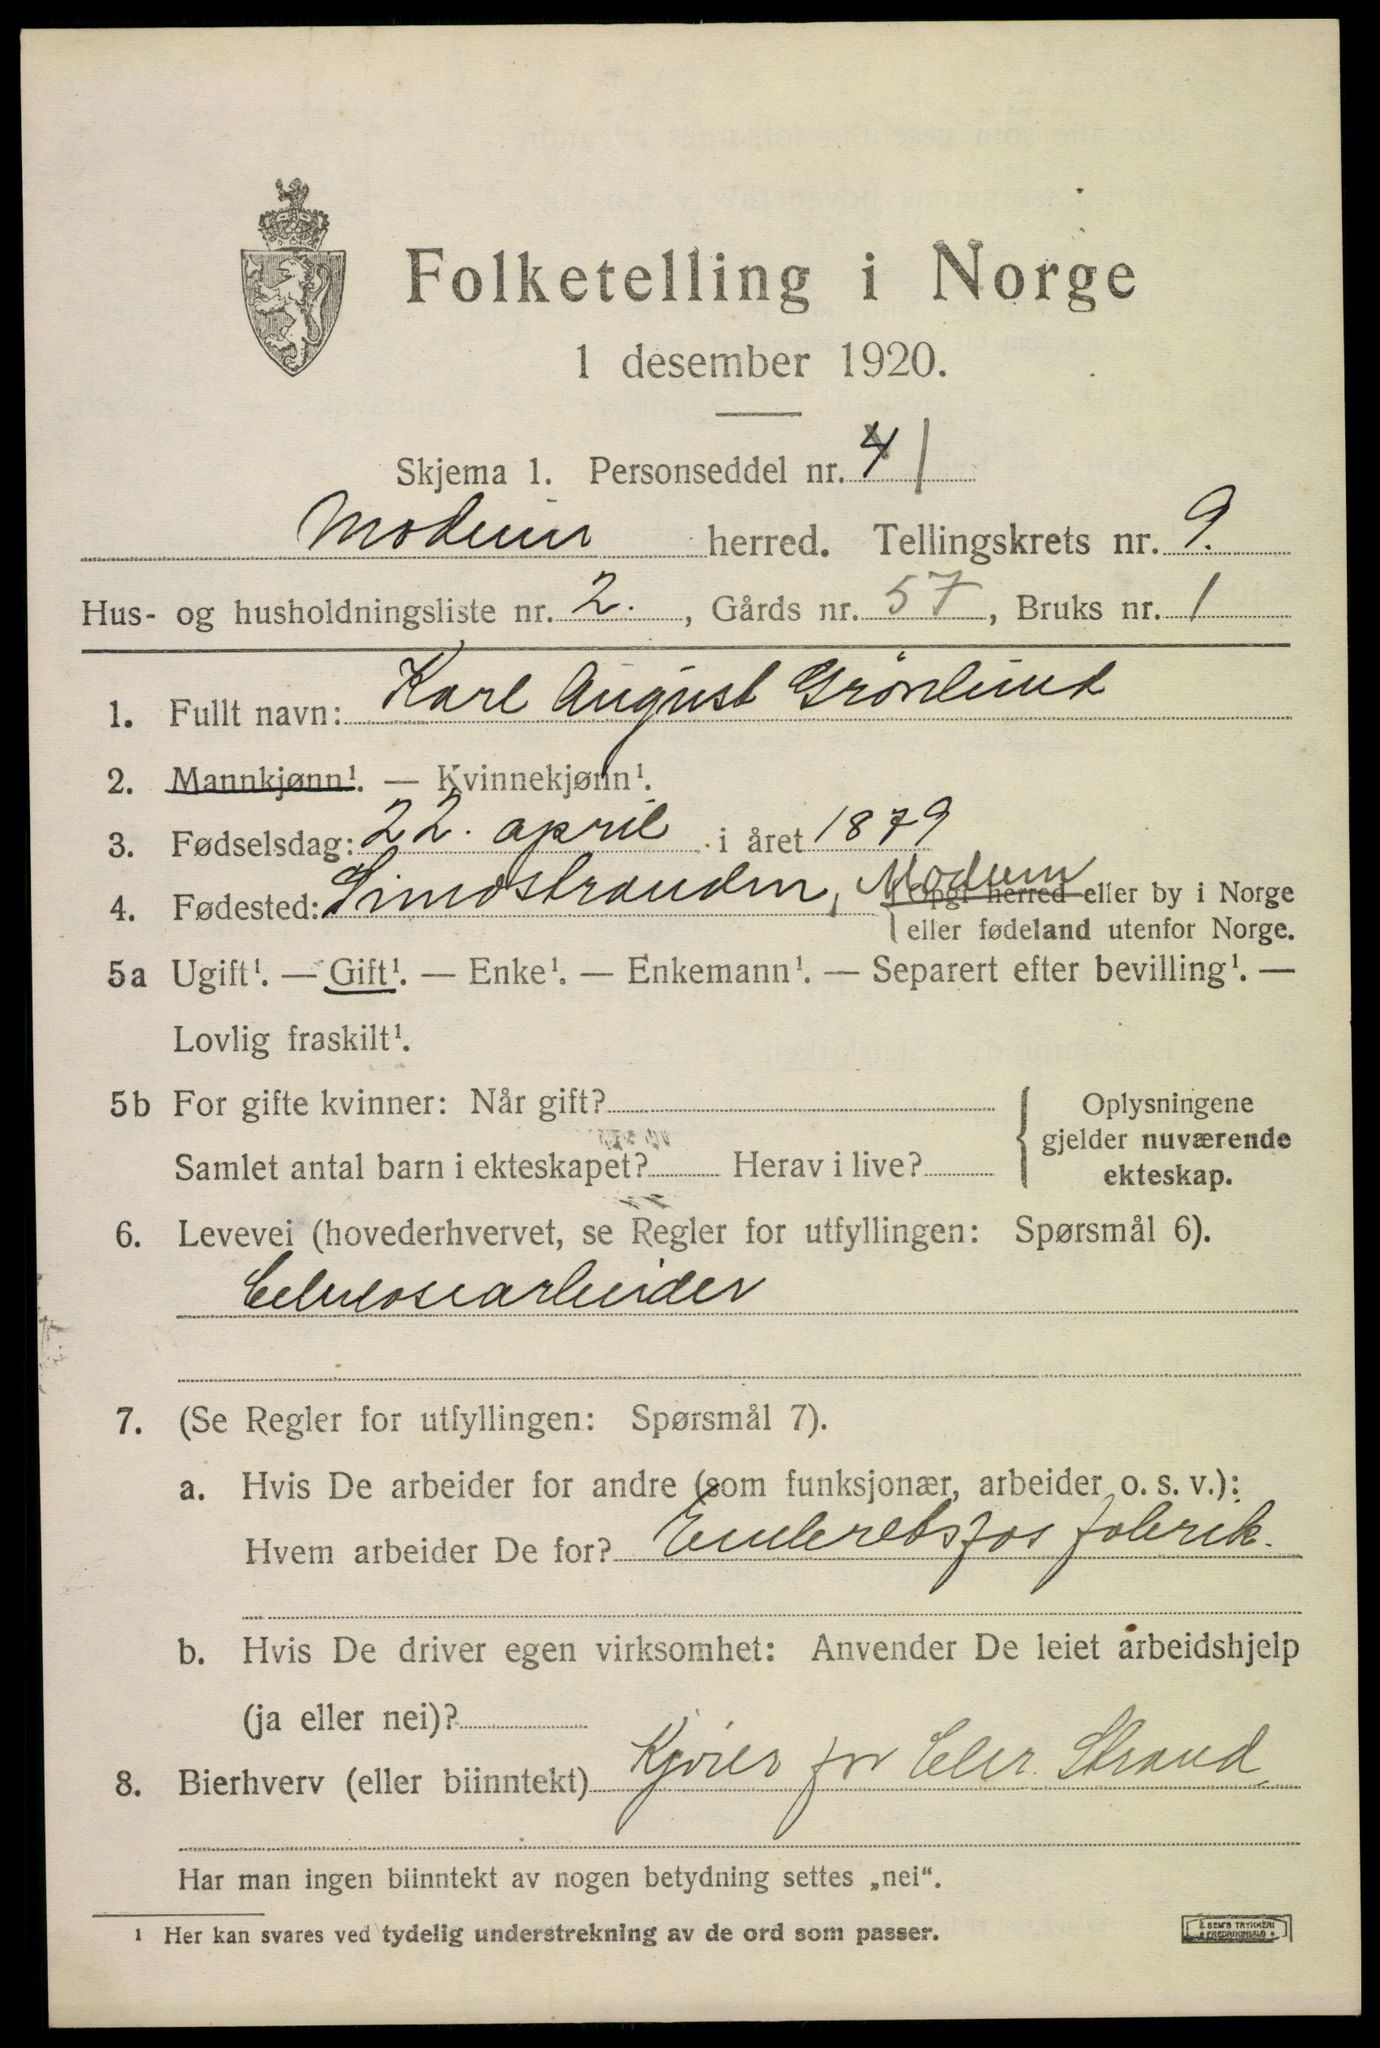 Folketelling i Norge
1 desember 1920.
Skjema 1. Personseddel nr. 4 1
Modum herred. Tellingskrets nr. 9.
Hus- og husholdningsliste nr. 2. , Gårds nr. 57, Bruks nr. 1
1. Fullt navn: Karl August Grönlund
2. Mannkjønn¹. — Kvinnekjønn¹.
3. Fødselsdag: 22. april i året 1879
4. Fødested: Simostranden, Modum { Opgi herred eller by i Norge
eller fødeland utenfor Norge.
5a Ugift¹. — Gift¹. — Enke¹. — Enkemann¹. — Separert efter bevilling¹. —
Lovlig fraskilt¹.
5b For gifte kvinner: Når gift?
Samlet antal barn i ekteskapet? Herav i live?
{ Oplysningene
gjelder nuværende
ekteskap.
6. Levevei (hovederhvervet, se Regler for utfyllingen: Spørsmål 6).
Celulosearbeider
7. (Se Regler for utfyllingen: Spørsmål 7).
a. Hvis De arbeider for andre (som funksjonær, arbeider o. s. v.):
Hvem arbeider De for? Embretsfos fabrik.
b. Hvis De driver egen virksomhet: Anvender De leiet arbeidshjelp
(ja eller nei)?
8. Bierhverv (eller biinntekt) Kjører for Chr. Strand
Har man ingen biinntekt av nogen betydning settes „nei".
¹ Her kan svares ved tydelig understrekning av de ord som passer.
E. SEM'S TRYKKERI
FREDRIKSHALD